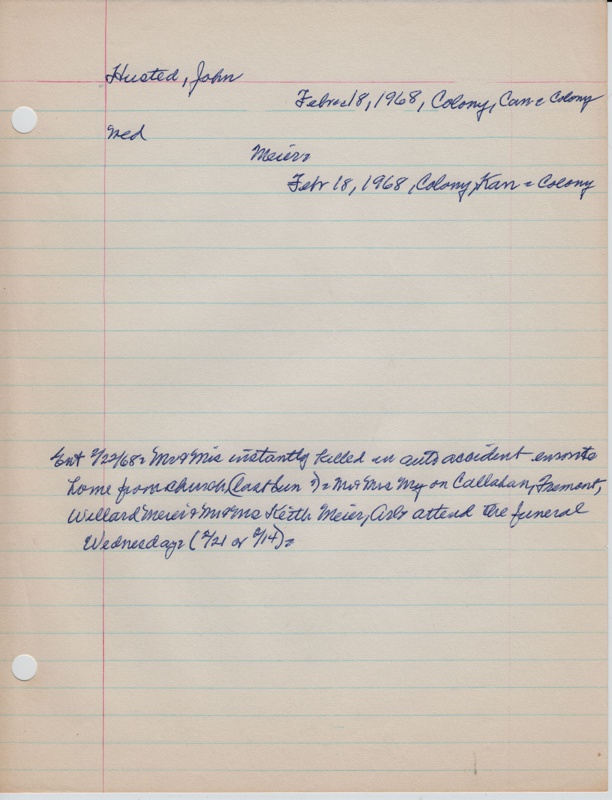 Husted, John
Febr 18, 1968, Colony, Can = Colony
wed
Meier =
Febr 18, 1968, Colony, Kan = Colony
Ent 2/22/68 = Mr & Mrs instantly killed in auto accident enroute
home from church (last Sun ?) = Mr & Mrs Callahan, Fremont,
Willard Meier & Mr & Mrs Keith Meier, Arl attend the funeral
Wednesday = (2/21 or 2/14) =